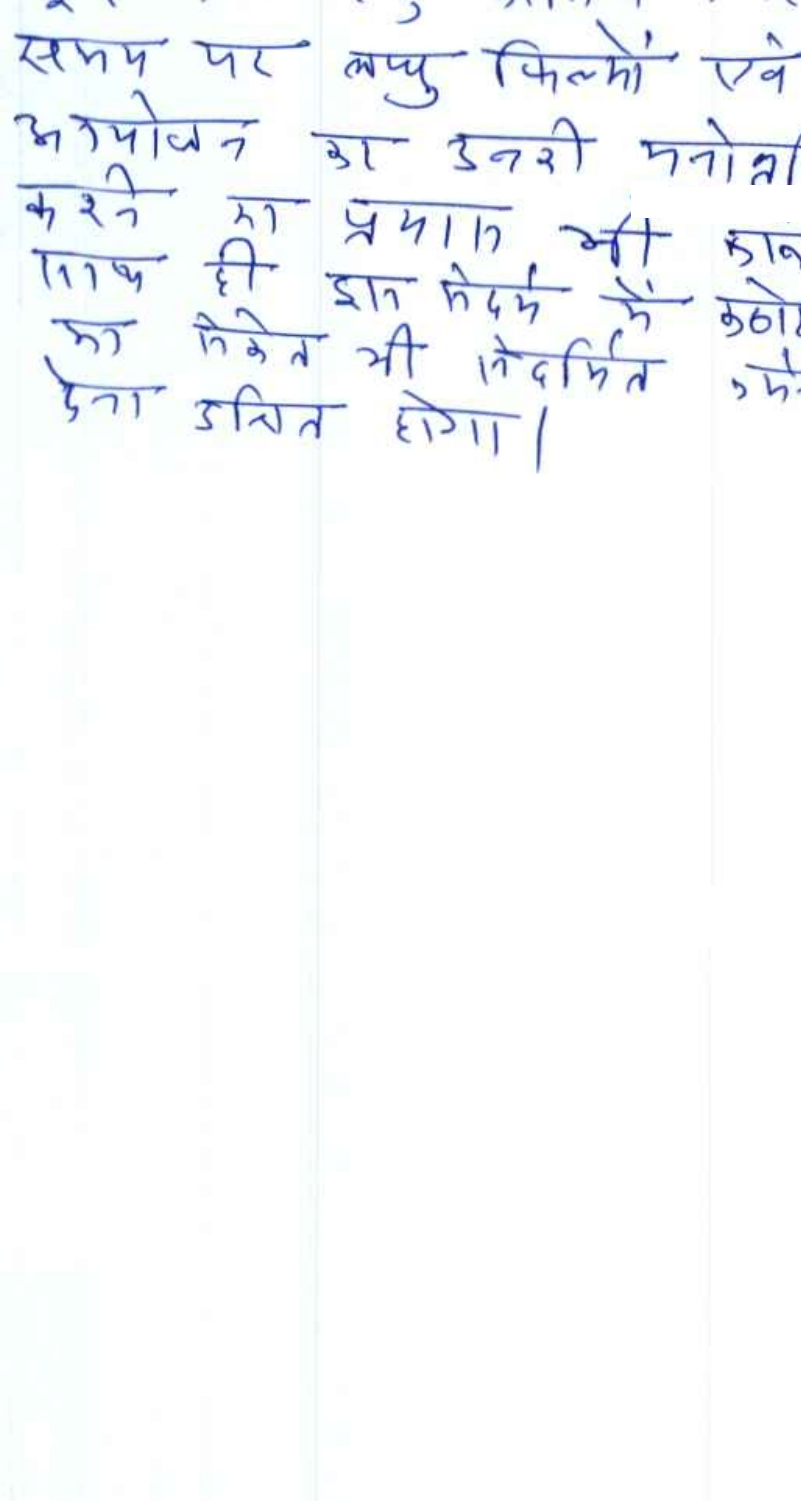 समय पर लघु फिल्मों एवं
आयोजन का उनकी
करने का प्रयास भी
साथ ही इस संदर्भ में
का संकेत भी संदर्भित
देना उचित होगा।